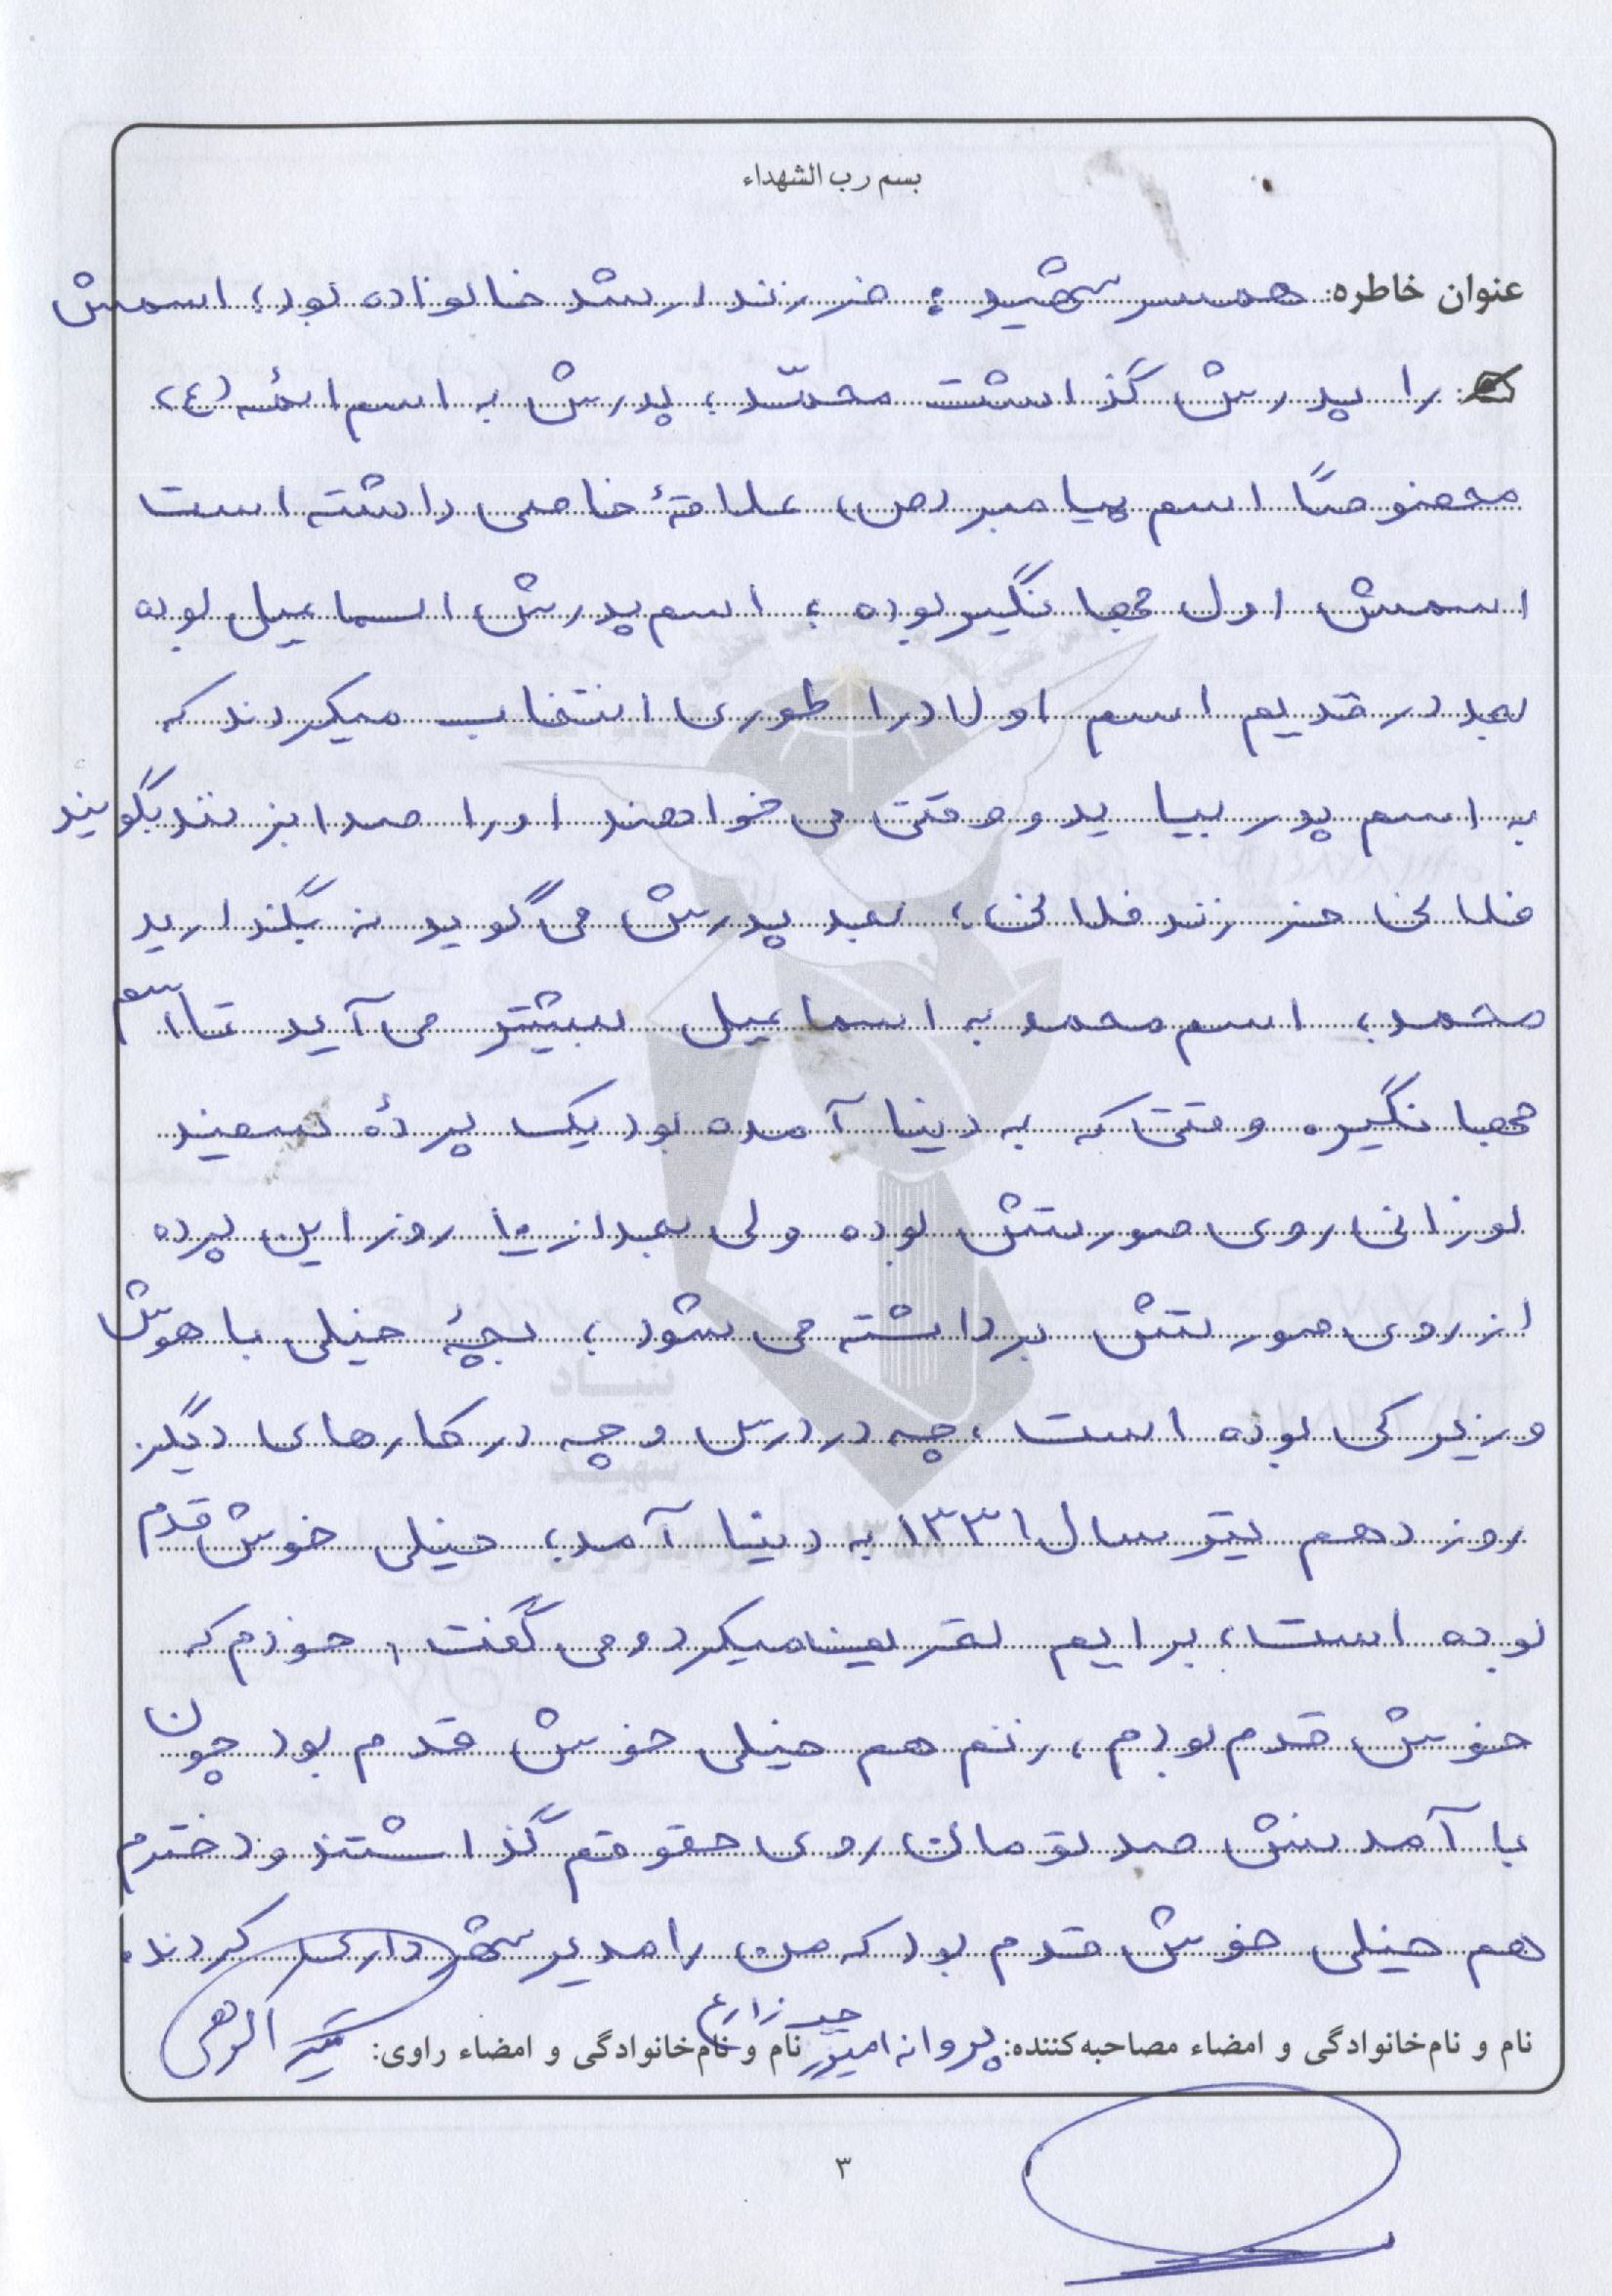 بسم رب الشهداء
عنوان خاطره: همسر شهید: فرزند ارشد خانواده بود، اسمش
را پدرش گذاشت محمّد، پدرش به اسم ائمه (ع)
مخصوصاً اسم پیامبر (ص) علاقهٔ خاصی داشته است
اسمش اول جهانگیر بوده، اسم پدرش اسماعیل بوده
بعد در قدیم اسم اولاد را طوری انتخاب میکردند که
به اسم پدر بیاید و وقتی می خواهند او را صدا بزنند بگویند
فلانی فرزند فلانی، بعد پدرش می گوید نه بگذارید
محمد، اسم محمد به اسماعیل بیشتر می آید تا اسم
جهانگیر. وقتی که به دنیا آمده بود یک پردهٔ سفید
نورانی روی صورتش بوده ولی بعد از ۱۰ روز این پرده
از روی صورتش برداشته می شود، بچهٔ خیلی با هوش
و زیرکی بوده است، چه در درس و چه در کارهای دیگر
روز دهم تیر سال ۱۳۳۱ به دنیا آمد، خیلی خوش قدم
بوده است، برایم تعریف میکرد و می گفت، خودم که
خوش قدم بودم، زنم هم خیلی خوش قدم بود چون
با آمدنش صد تومان روی حقوقم گذاشتند و دخترم
هم خیلی خوش قدم بود که من را مدیر شهرداری کردند.
نام و نام‌خانوادگی و امضاء مصاحبه‌کننده: پروانه امیر زارع نام و نام‌خانوادگی و امضاء راوی:
۳
بنیاد
شهید